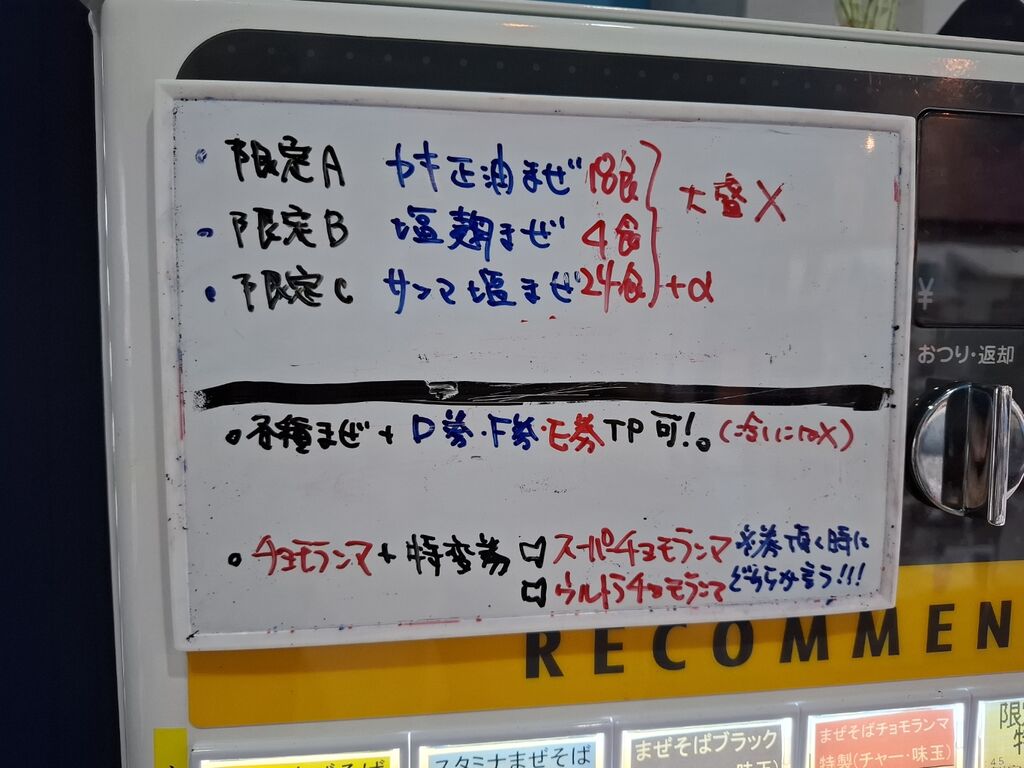 ・限定A カキ正油まぜ 18食
・限定B 塩麹まぜ 4食 大盛X
・限定C サンマ塩まぜ 24食 +α
。各種まぜ + D券・F券・E券 TP可!。
。チョモランマ + 特変券 □スーパーチョモランマ ※券頂く時に
□ウルトラチョモランマ どちらか言う!!!
¥
おつり・返却
RECOMMEN
スタミナまぜそば
まぜそばブラック
まぜそばチョモランマ
特製(チャー・味玉)
限
特